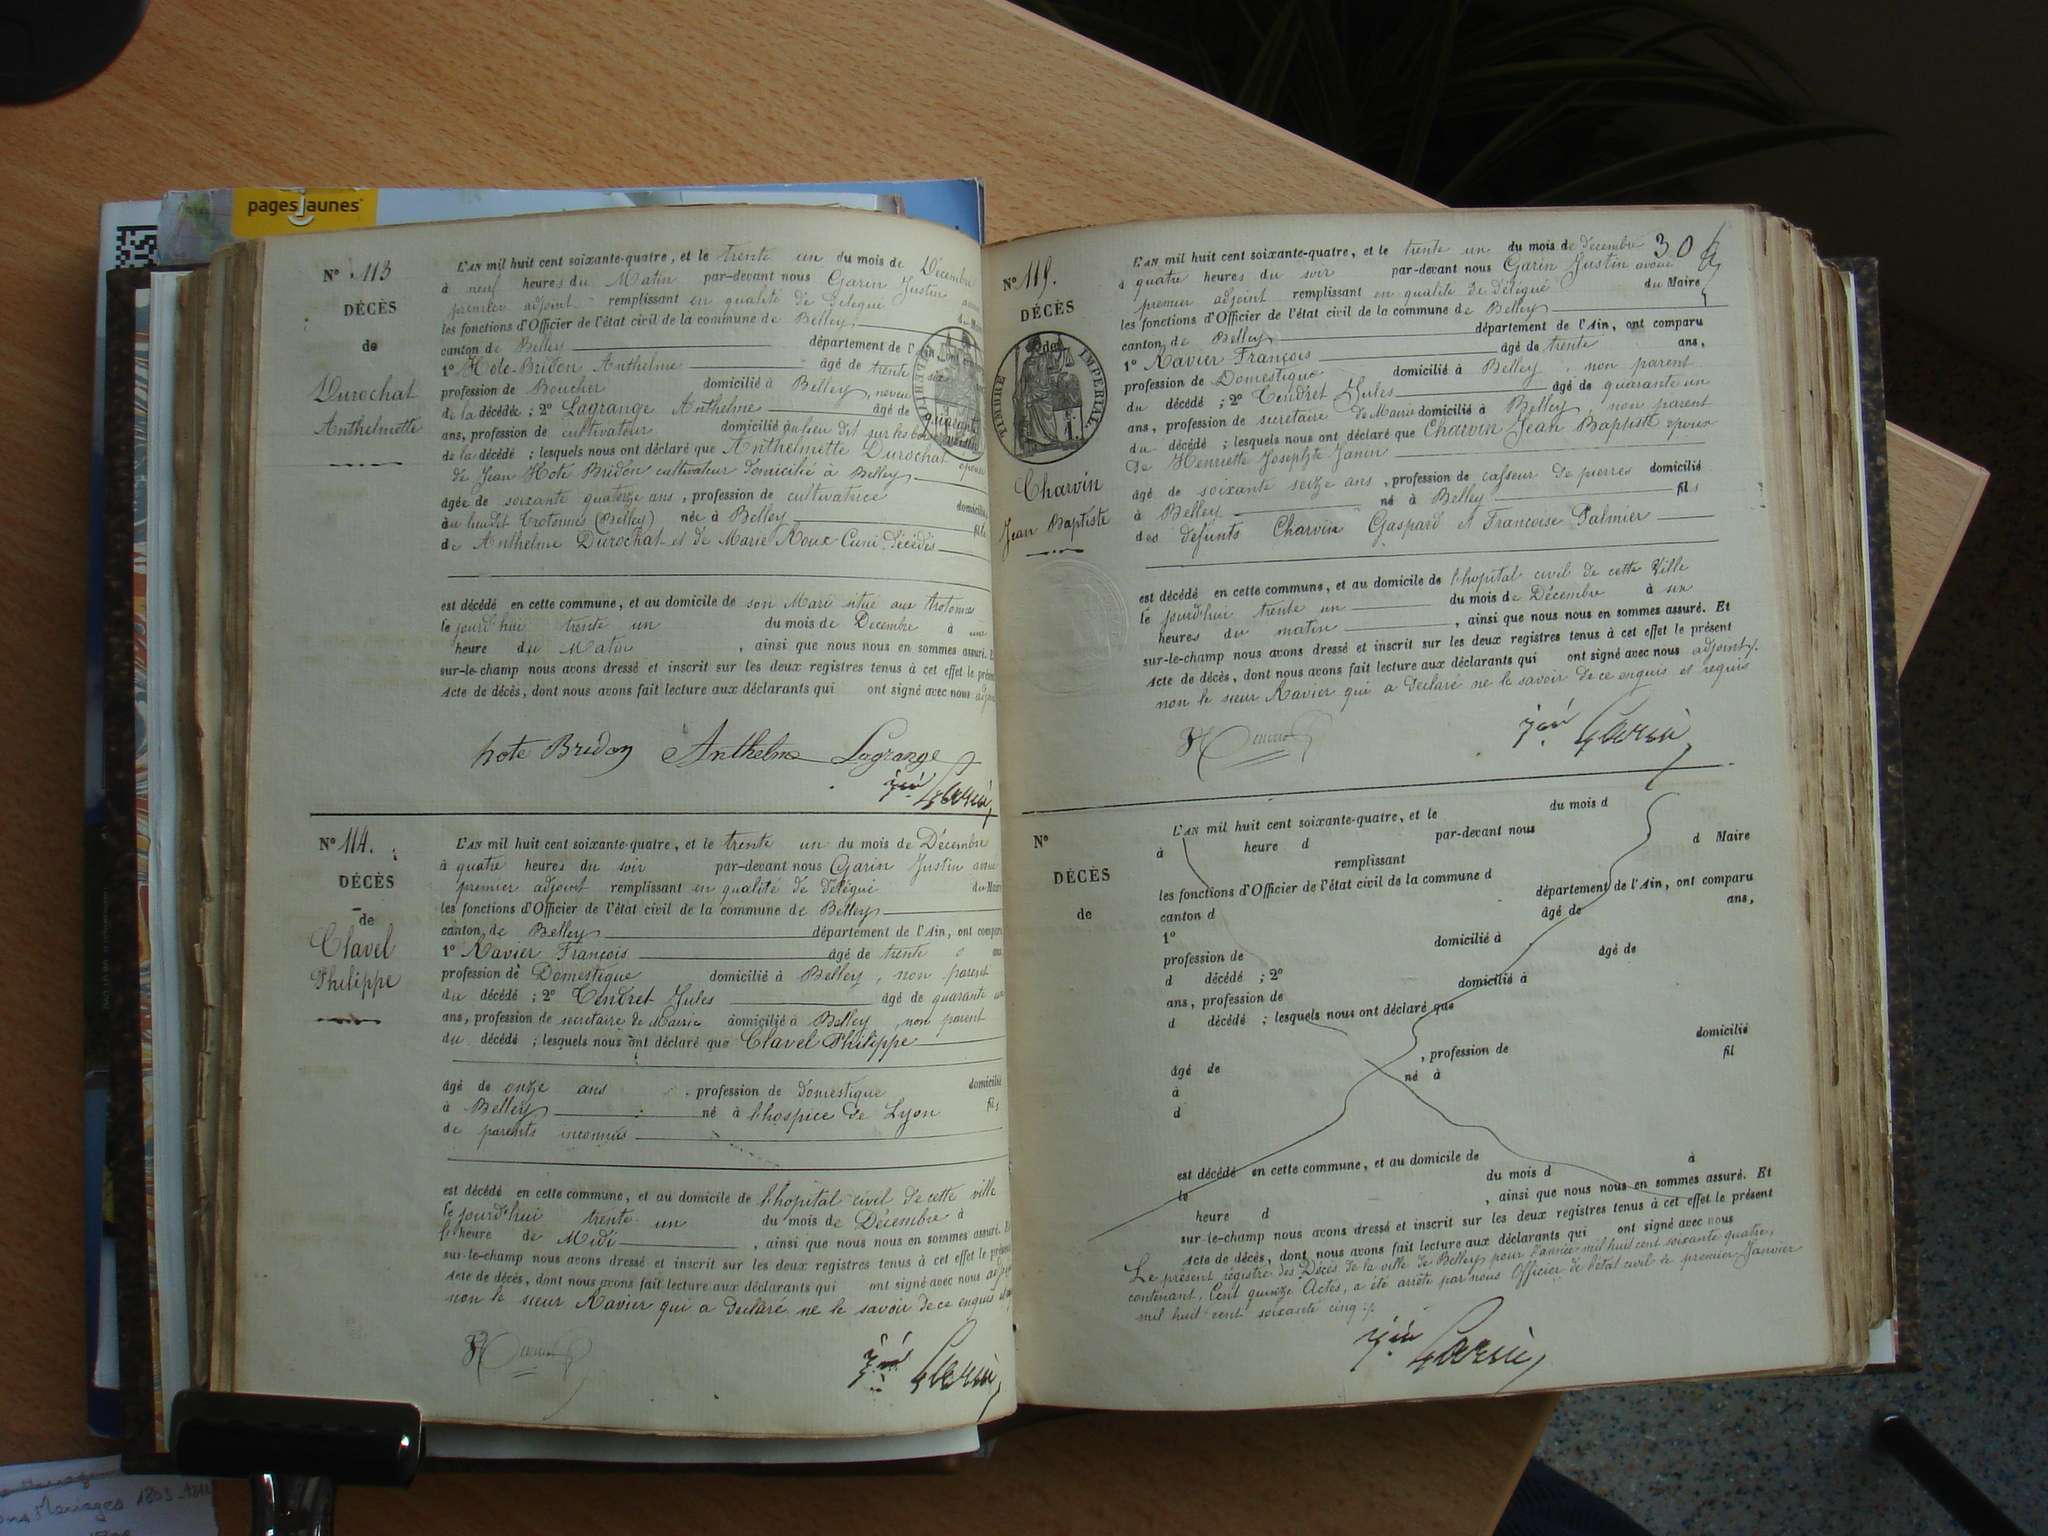 pagesjaunes
N° 113
DÉCÈS
de
Durochat
Anthelmette
L'AN mil huit cent soixante-quatre, et le trente un du mois de Décembre
à neuf heures du Matin par-devant nous Garin Justin avoué
premier adjoint remplissant en qualité de délégué du Maire
les fonctions d'Officier de l'état civil de la commune de Belley
canton de Belley département de l'Ain, ont
1° Hote-Bridon Anthelme âgé de trente six
profession de Boucher domicilié à Belley, neveu
de la décédée ; 2° Lagrange Anthelme âgé de quarante
ans, profession de cultivateur domicilié au lieu dit sur les
de la décédé ; lesquels nous ont déclaré que Anthelmette Durochat épouse
de Jean Hote Bridon cultivateur domicilié à Belley
âgée de soixante quatorze ans, profession de cultivatrice domiciliée
au lieudit Trotonnes (Belley) née à Belley fille
de Anthelme Durochat et de Marie Roux Cuni, décédés
est décédé en cette commune, et au domicile de son Mari situé aux trotonnes
le jourd'hui trente un du mois de Décembre à une
heure du Matin, ainsi que nous nous en sommes assuré. Et
sur-le-champ nous avons dressé et inscrit sur les deux registres tenus à cet effet le présent
Acte de décès, dont nous avons fait lecture aux déclarants qui ont signé avec nous adjoint
hote Bridon Anthelme Lagrange
Garin
N° 114.
DÉCÈS
de
Clavel
Philippe
L'AN mil huit cent soixante-quatre, et le trente un du mois de Décembre
à quatre heures du soir par-devant nous Garin Justin avoué
premier adjoint remplissant en qualité de délégué du Maire
les fonctions d'Officier de l'état civil de la commune de Belley
canton de Belley département de l'Ain, ont comparu
1° Ravier François âgé de trente ans
profession de Domestique domicilié à Belley, non parent
du décédé ; 2° Tendret Jules âgé de quarante un
ans, profession de secrétaire de Mairie domicilié à Belley, non parent
du décédé ; lesquels nous ont déclaré que Clavel Philippe
âgé de onze ans, profession de Domestique domicilié
à Belley né à l'hospice de Lyon fils
de parents inconnus
est décédé en cette commune, et au domicile de l'hopital civil de cette ville
le jourd'hui trente un du mois de Décembre à
l'heure de Midi, ainsi que nous nous en sommes assuré. Et
sur-le-champ nous avons dressé et inscrit sur les deux registres tenus à cet effet le présent
Acte de décès, dont nous avons fait lecture aux déclarants qui ont signé avec nous adjoint
non le sieur Ravier qui a déclaré ne le savoir de ce enquis et
Garin
304
N° 115.
DÉCÈS
de
TIMBRE IMPERIAL
Charvin
Jean Baptiste
L'AN mil huit cent soixante-quatre, et le trente un du mois de Décembre
à quatre heures du soir par-devant nous Garin Justin avoué
premier adjoint remplissant en qualité de délégué du Maire
les fonctions d'Officier de l'état civil de la commune de Belley
canton de Belley département de l'Ain, ont comparu
1° Ravier François âgé de trente ans,
profession de Domestique domicilié à Belley, non parent
du décédé ; 2° Tendret Jules âgé de quarante un
ans, profession de secrétaire de Mairie domicilié à Belley, non parent
du décédé ; lesquels nous ont déclaré que Charvin Jean Baptiste époux
de Henriette Josephte Janin
âgé de soixante seize ans, profession de casseur de pierres domicilié
à Belley né à Belley fils
des défunts Charvin Gaspard et Françoise Palmier
est décédé en cette commune, et au domicile de l'hopital civil de cette Ville
le jourd'hui trente un du mois de Décembre à six
heures du matin, ainsi que nous nous en sommes assuré. Et
sur-le-champ nous avons dressé et inscrit sur les deux registres tenus à cet effet le présent
Acte de décès, dont nous avons fait lecture aux déclarants qui ont signé avec nous adjoint
non le sieur Ravier qui a déclaré ne le savoir de ce enquis et requis
Garin
N°
DÉCÈS
de
L'AN mil huit cent soixante-quatre, et le du mois d
à heure d par-devant nous
remplissant d Maire
les fonctions d'Officier de l'état civil de la commune d
canton d département de l'Ain, ont comparu
1° âgé de ans,
profession de domicilié à
d décédé ; 2° âgé de
ans, profession de domicilié à
d décédé ; lesquels nous ont déclaré que
âgé de , profession de domicilié
à né à fil
d
est décédé en cette commune, et au domicile de
le du mois d à
heure d , ainsi que nous nous en sommes assuré. Et
sur-le-champ nous avons dressé et inscrit sur les deux registres tenus à cet effet le présent
Acte de décès, dont nous avons fait lecture aux déclarants qui ont signé avec nous
Le présent registre des Décès de la ville de Belley pour l'année mil huit cent soixante quatre,
contenant Cent quinze Actes, a été arrêté par nous Officier de l'état civil le premier Janvier
mil huit cent soixante cinq
Garin
Mariages 1803